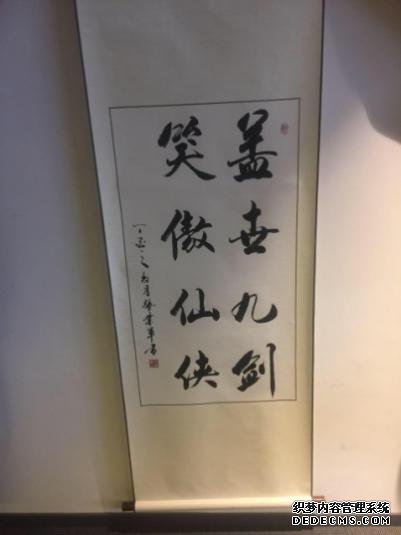 盖世九剑
笑傲仙侠
织梦内容管理系统
DEDECMS.COM